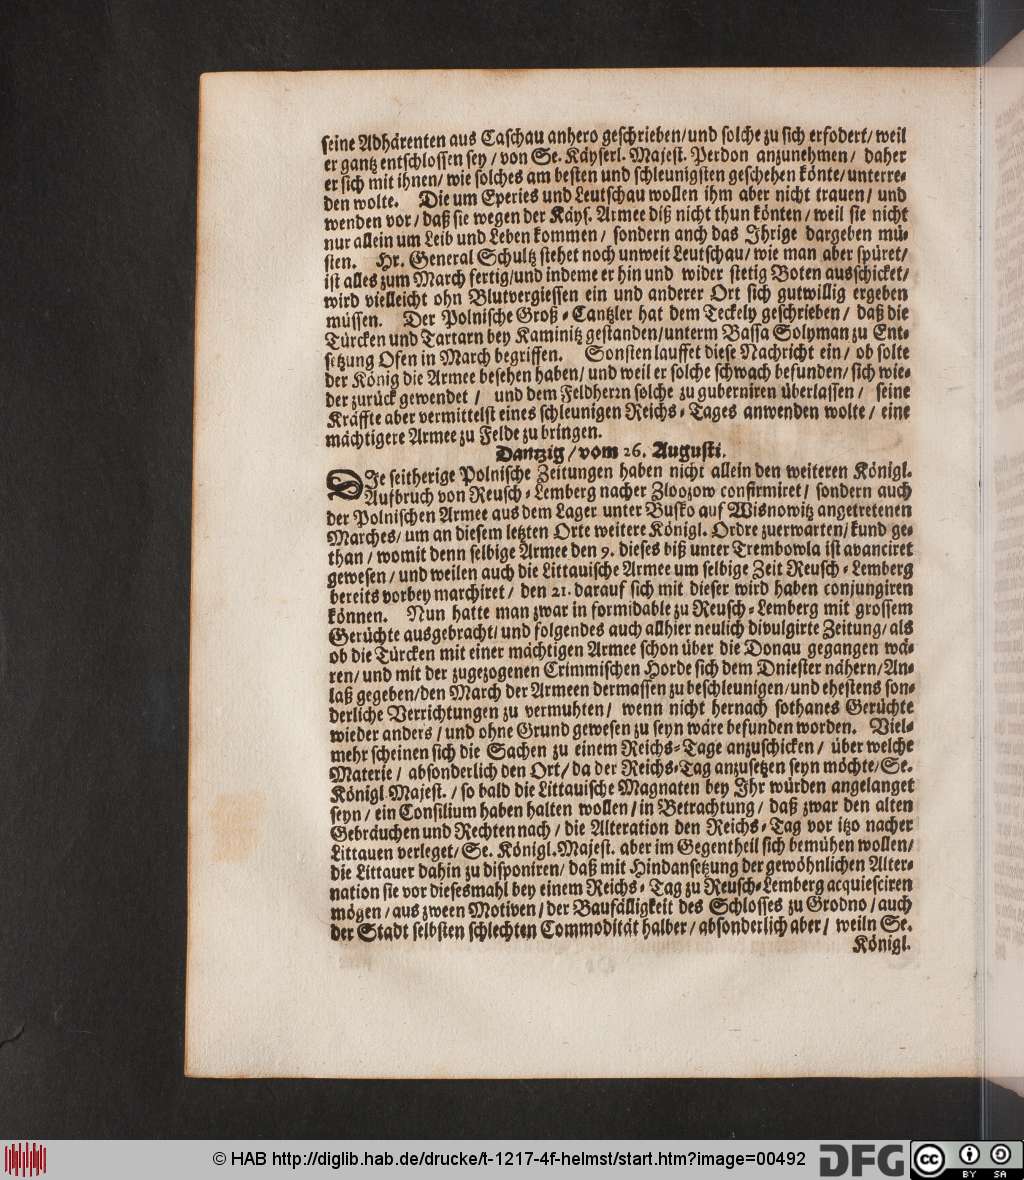 seine Adhärenten aus Caschau anhero geschrieben/und solche zu sich erfodert/ weil
er gantz entschlossen sey / von Se. Käyserl. Majest. Perdon anzunehmen / daher
er sich mit ihnen/ wie solches am besten und schleunigsten geschehen könte/ unterre-
den wolte. Die um Eperies und Leutschau wollen ihm aber nicht trauen/ und
wenden vor/ daß sie wegen der Käys. Armee diß nicht thun könten/ weil sie nicht
nur allein um Leib und Leben kommen/ sondern anch das Ihrige dargeben mü-
sten. Hr. General Schultz stehet noch unweit Leutschau/ wie man aber spüret/
ist alles zum March fertig/und indeme er hin und wider stetig Boten ausschicket/
wird vielleicht ohn Blutvergiessen ein und anderer Ort sich gutwillig ergeben
müssen. Der Polnische Groß-Cantzler hat dem Teckely geschrieben/ daß die
Türcken und Tartarn bey Kaminitz gestanden/unterm Bassa Solyman zu Ent-
setzung Ofen in March begriffen. Sonsten lauffet diese Nachricht ein/ ob solte
der König die Armee besehen haben/ und weil er solche schwach befunden/ sich wie-
der zurück gewendet / und dem Feldherzn solche zu guberniren überlassen / seine
Kräffte aber vermittelst eines schleunigen Reichs-Tages anwenden wolte / eine
mächtigere Armee zu Felde zu bringen.
Dantzig/vom 26. Augusti.
DIe seitherige Polnische Zeitungen haben nicht allein den weiteren Königl.
Aufbruch von Reusch-Lemberg nacher Zloozow confirmiret/ sondern auch
der Polnischen Armee aus dem Lager unter Busko auf Wisnowitz angetretenen
Marches/ um an diesem letzten Orte weitere Königl. Ordre zuerwarten/ kund ge-
than / womit denn selbige Armee den 9. dieses biß unter Trembowla ist avanciret
gewesen / und weilen auch die Littauische Armee um selbige Zeit Reusch-Lemberg
bereits vorbey marchiret/ den 21. darauf sich mit dieser wird haben conjungiren
können. Nun hatte man zwar in formidable zu Reusch-Lemberg mit grossem
Gerüchte ausgebracht/ und folgendes auch allhier neulich divulgirte Zeitung/ als
ob die Türcken mit einer mächtigen Armee schon über die Donau gegangen wä-
ren/ und mit der zugezogenen Crimmischen Horde sich dem Dniester nähern/ An-
laß gegeben/den March der Armeen dermassen zu beschleunigen/und ehestens son-
derliche Verrichtungen zu vermuhten/ wenn nicht hernach sothanes Gerüchte
wieder anders / und ohne Grund gewesen zu seyn wäre befunden worden. Viel-
mehr scheinen sich die Sachen zu einem Reichs-Tage anzuschicken / über welche
Materie / absonderlich den Ort/ da der Reichs-Tag anzusetzen seyn möchte/ Se.
Königl Majest. / so bald die Littauische Magnaten bey Ihr würden angelanget
seyn / ein Consilium haben halten wollen / in Betrachtung / daß zwar den alten
Gebräuchen und Rechten nach / die Alteration den Reichs-Tag vor itzo nacher
Littauen verleget/ Se. Königl. Majest. aber im Gegentheil sich bemühen wollen/
die Littauer dahin zu disponiren/ daß mit Hindansetzung der gewöhnlichen Alter-
nation sie vor diesesmahl bey einem Reichs-Tag zu Reusch-Lemberg acquiesciren
mögen / aus zween Motiven / der Baufälligkeit des Schlosses zu Grodno / auch
der Stadt selbsten schlechten Commodität halber / absonderlich aber / weiln Se.
Königl.
© HAB http://diglib.hab.de/drucke/t-1217-4f-helmst/start.htm?image=00492
DFG
cc BY SA